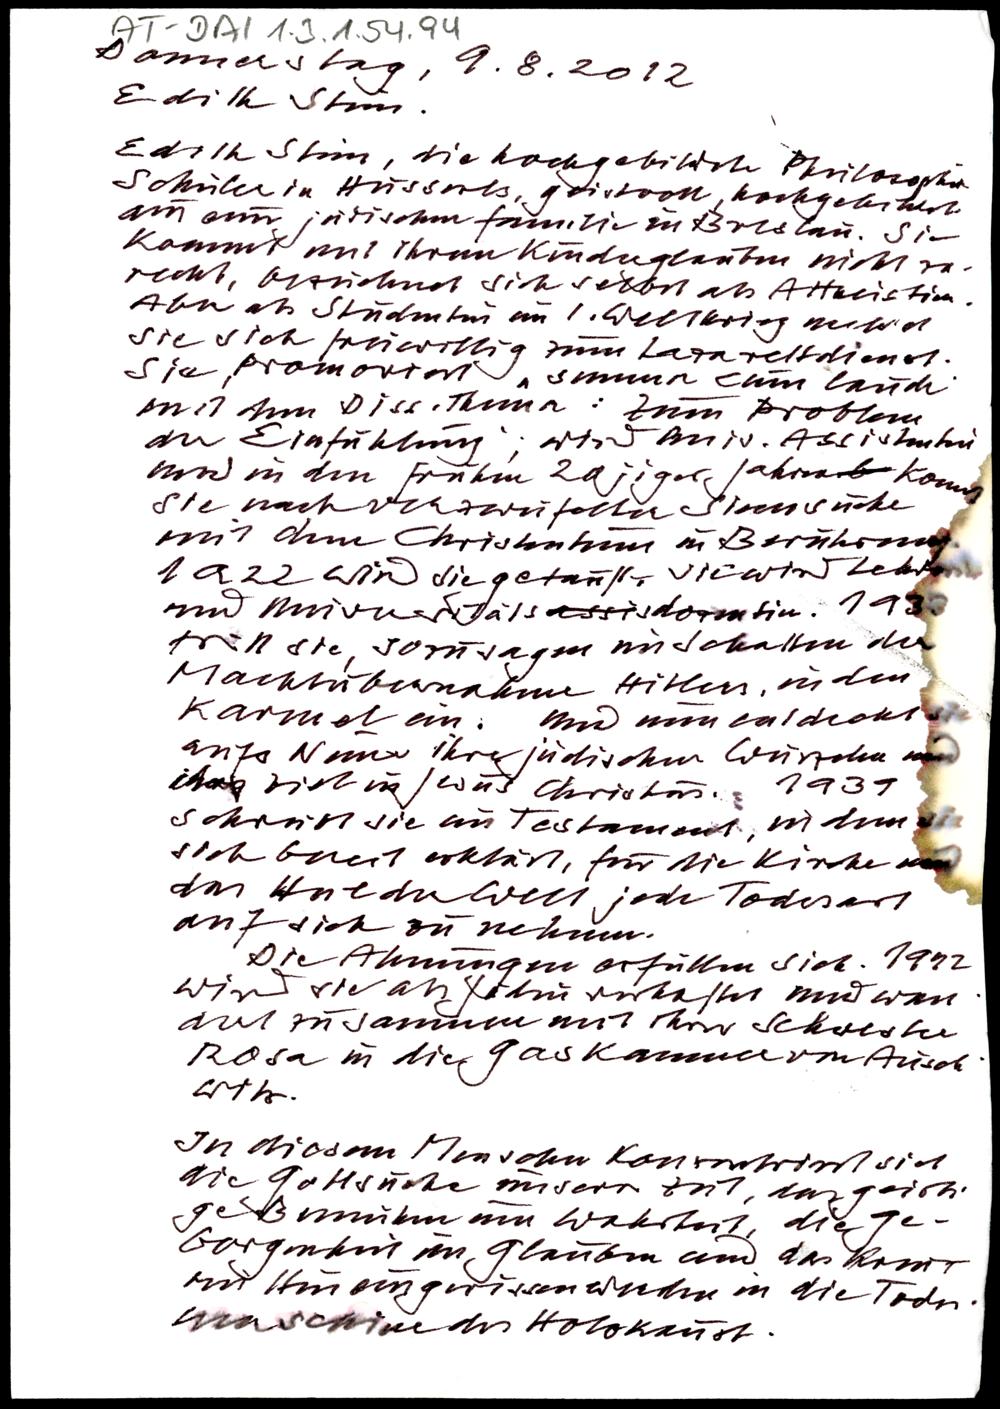 AT-DAI 1.3.1.54.94
Donnerstag, 9.8.2012
Edith Stein.
Edith Stein, die hochgebildete Philosophin
Schülerin Husserls, geistvoll, hochgebildet
aus einer jüdischen Familie in Breslau. Sie
kommt mit ihrem Kinderglauben nicht zu-
recht, bezeichnet sich selbst als Atheistin.
Aber als Studentin im 1. Weltkrieg meldet
sie sich freiwillig zum Lazarettdienst.
Sie promoviert "summa cum laude"
mit dem Diss.Thema: Zum Problem
der Einfühlung'; wird Univ. Assistentin
und in den frühen 20jiger Jahren kommt
sie nach verzweifelter Sinnsuche
mit dem Christentum in Berührung.
1922 wird sie getauft. Sie wird Lehrerin
und Universitätsdozentin. 1933
tritt sie, sozusagen im Schatten der
Machtübernahme Hitlers, in den
Karmel ein. Und nun entdeckt sie
aufs Neue ihre jüdischen Wurzeln und
ihr Ziel in Jesus Christus. 1939
schreibt sie ein Testament, in dem sie
sich bereit erklärt, für die Kirche und
das Heil der Welt jede Todesart
auf sich zu nehmen.
Die Ahnungen erfüllen sich. 1942
wird sie als Jüdin verhaftet und wan-
dert zusammen mit ihrer Schwester
Rosa in die Gaskammer von Ausch-
witz.
In diesem Menschen konzentriert sich
die Gottsuche unserer Zeit, das geisti-
ge Bemühen um Wahrheit, die Ge-
borgenheit im Glauben und das
mit Hineingerissenwerden in die Todes-
maschine des Holokaust.